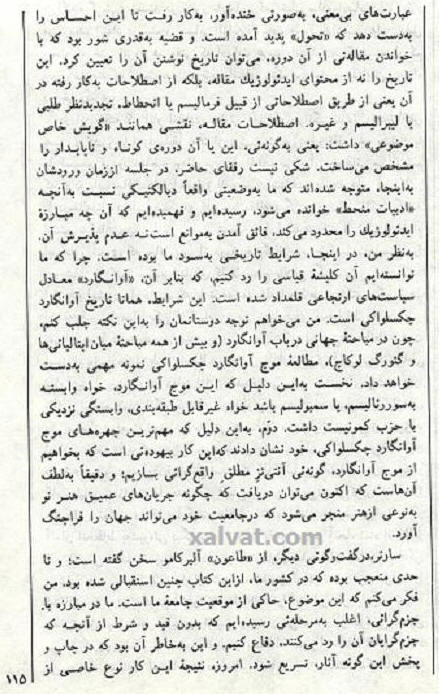 عبارت‌های بی‌معنی، به‌صورتی خنده‌آور، به‌کار رفت تا این احساس را
به‌دست دهد که «تحول» پدید آمده است. و قضیه به‌قدری شور بود که با
خواندن مقاله‌ئی از آن دوره، می‌توان تاریخ نوشتن آن را تعیین کرد. این
تاریخ را نه از محتوای ایدئولوژیك مقاله، بلکه از اصطلاحات به‌کار رفته در
آن یعنی از طریق اصطلاحاتی از قبیل فرمالیسم یا انحطاط، تجدیدنظر طلبی
یا لیبرالیسم و غیره. اصطلاحات مقاله، نقشی همانند «گویش خاص
موضوعی» داشت: یعنی به‌گونه‌ئی، این یا آن دوره‌ی کوتاه و ناپایدار را
مشخص می‌ساخت. شکی نیست رفقای حاضر، در جلسه اززمان ورودشان
به‌اینجا، متوجه شده‌اند که ما به‌وضعیتی واقعاً دیالکتیکی نسبت به‌آنچه
«ادبیات منحط» خوانده می‌شود، رسیده‌ایم و فهمیده‌ایم که آن چه مبارزهٔ
ایدئولوژیك را محدود می‌کند، فائق آمدن به‌موانع است‌نه عدم پذیرش آن.
به‌نظر من، در اینجا، شرایط تاریخی به‌سود ما بوده است. چرا که ما
توانسته‌ایم آن کلیشهٔ قیاسی را رد کنیم، که بنابر آن، «آوانگارد» معادل
سیاست‌های ارتجاعی قلمداد شده است. این شرایط، همانا تاریخ آوانگارد
چکسلواکی است. من می‌خواهم توجه دوستانمان را به‌این نکته جلب کنم،
چون در مباحثهٔ جهانی درباب آوانگارد (و بیش از همه مباحثهٔ میان ایتالیائی‌ها
و گئورگ لوکاچ)، مطالعهٔ موج آوانگارد چکسلواکی نمونه مهمی به‌دست
خواهد داد. نخست به‌این دلیل که این موج آوانگارد، خواه وابسته
به‌سوررئالیسم، یا سمبولیسم باشد خواه غیرقابل طبقه‌بندی، وابستگی نزدیکی
با حزب کمونیست داشت. دوّم، به‌این دلیل که مهم‌ترین چهره‌های موج
آوانگارد چکسلواکی، خود نشان دادند که‌این کار بیهوده‌ئی است که بخواهیم
از موج آوانگارد، گونه‌ئی آنتی‌تز مطلق واقع‌گرائی بسازیم؛ و دقیقاً به‌لطف
آن‌هاست که اکنون می‌توان دریافت که چگونه جریان‌های عمیق هنر نو
به‌نوعی ازهنر منجر می‌شود که درجامعیت خود می‌تواند جهان را فراچنگ
آورد.
xalvat.com
سارتر، درگفت‌وگوئی دیگر، از «طاعون» آلبرکامو سخن گفته است؛ و تا
حدی متعجب بوده که در کشور ما، ازاین کتاب چنین استقبالی شده بود. من
فکر می‌کنم که این موضوع، حاکی از موقعیت جامعهٔ ما است. ما در مبارزه با
جزم‌گرائی، اغلب به‌مرحله‌ئی رسیده‌ایم که بدون قید و شرط از آنچه که
جزم‌گرایان آن را رد می‌کنند، دفاع کنیم، و این به‌خاطر آن بود که در چاپ و
پخش این گونه آثار، تسریع شود. امروزه نتیجهٔ این کار نوع خاصی از
۱۱۵